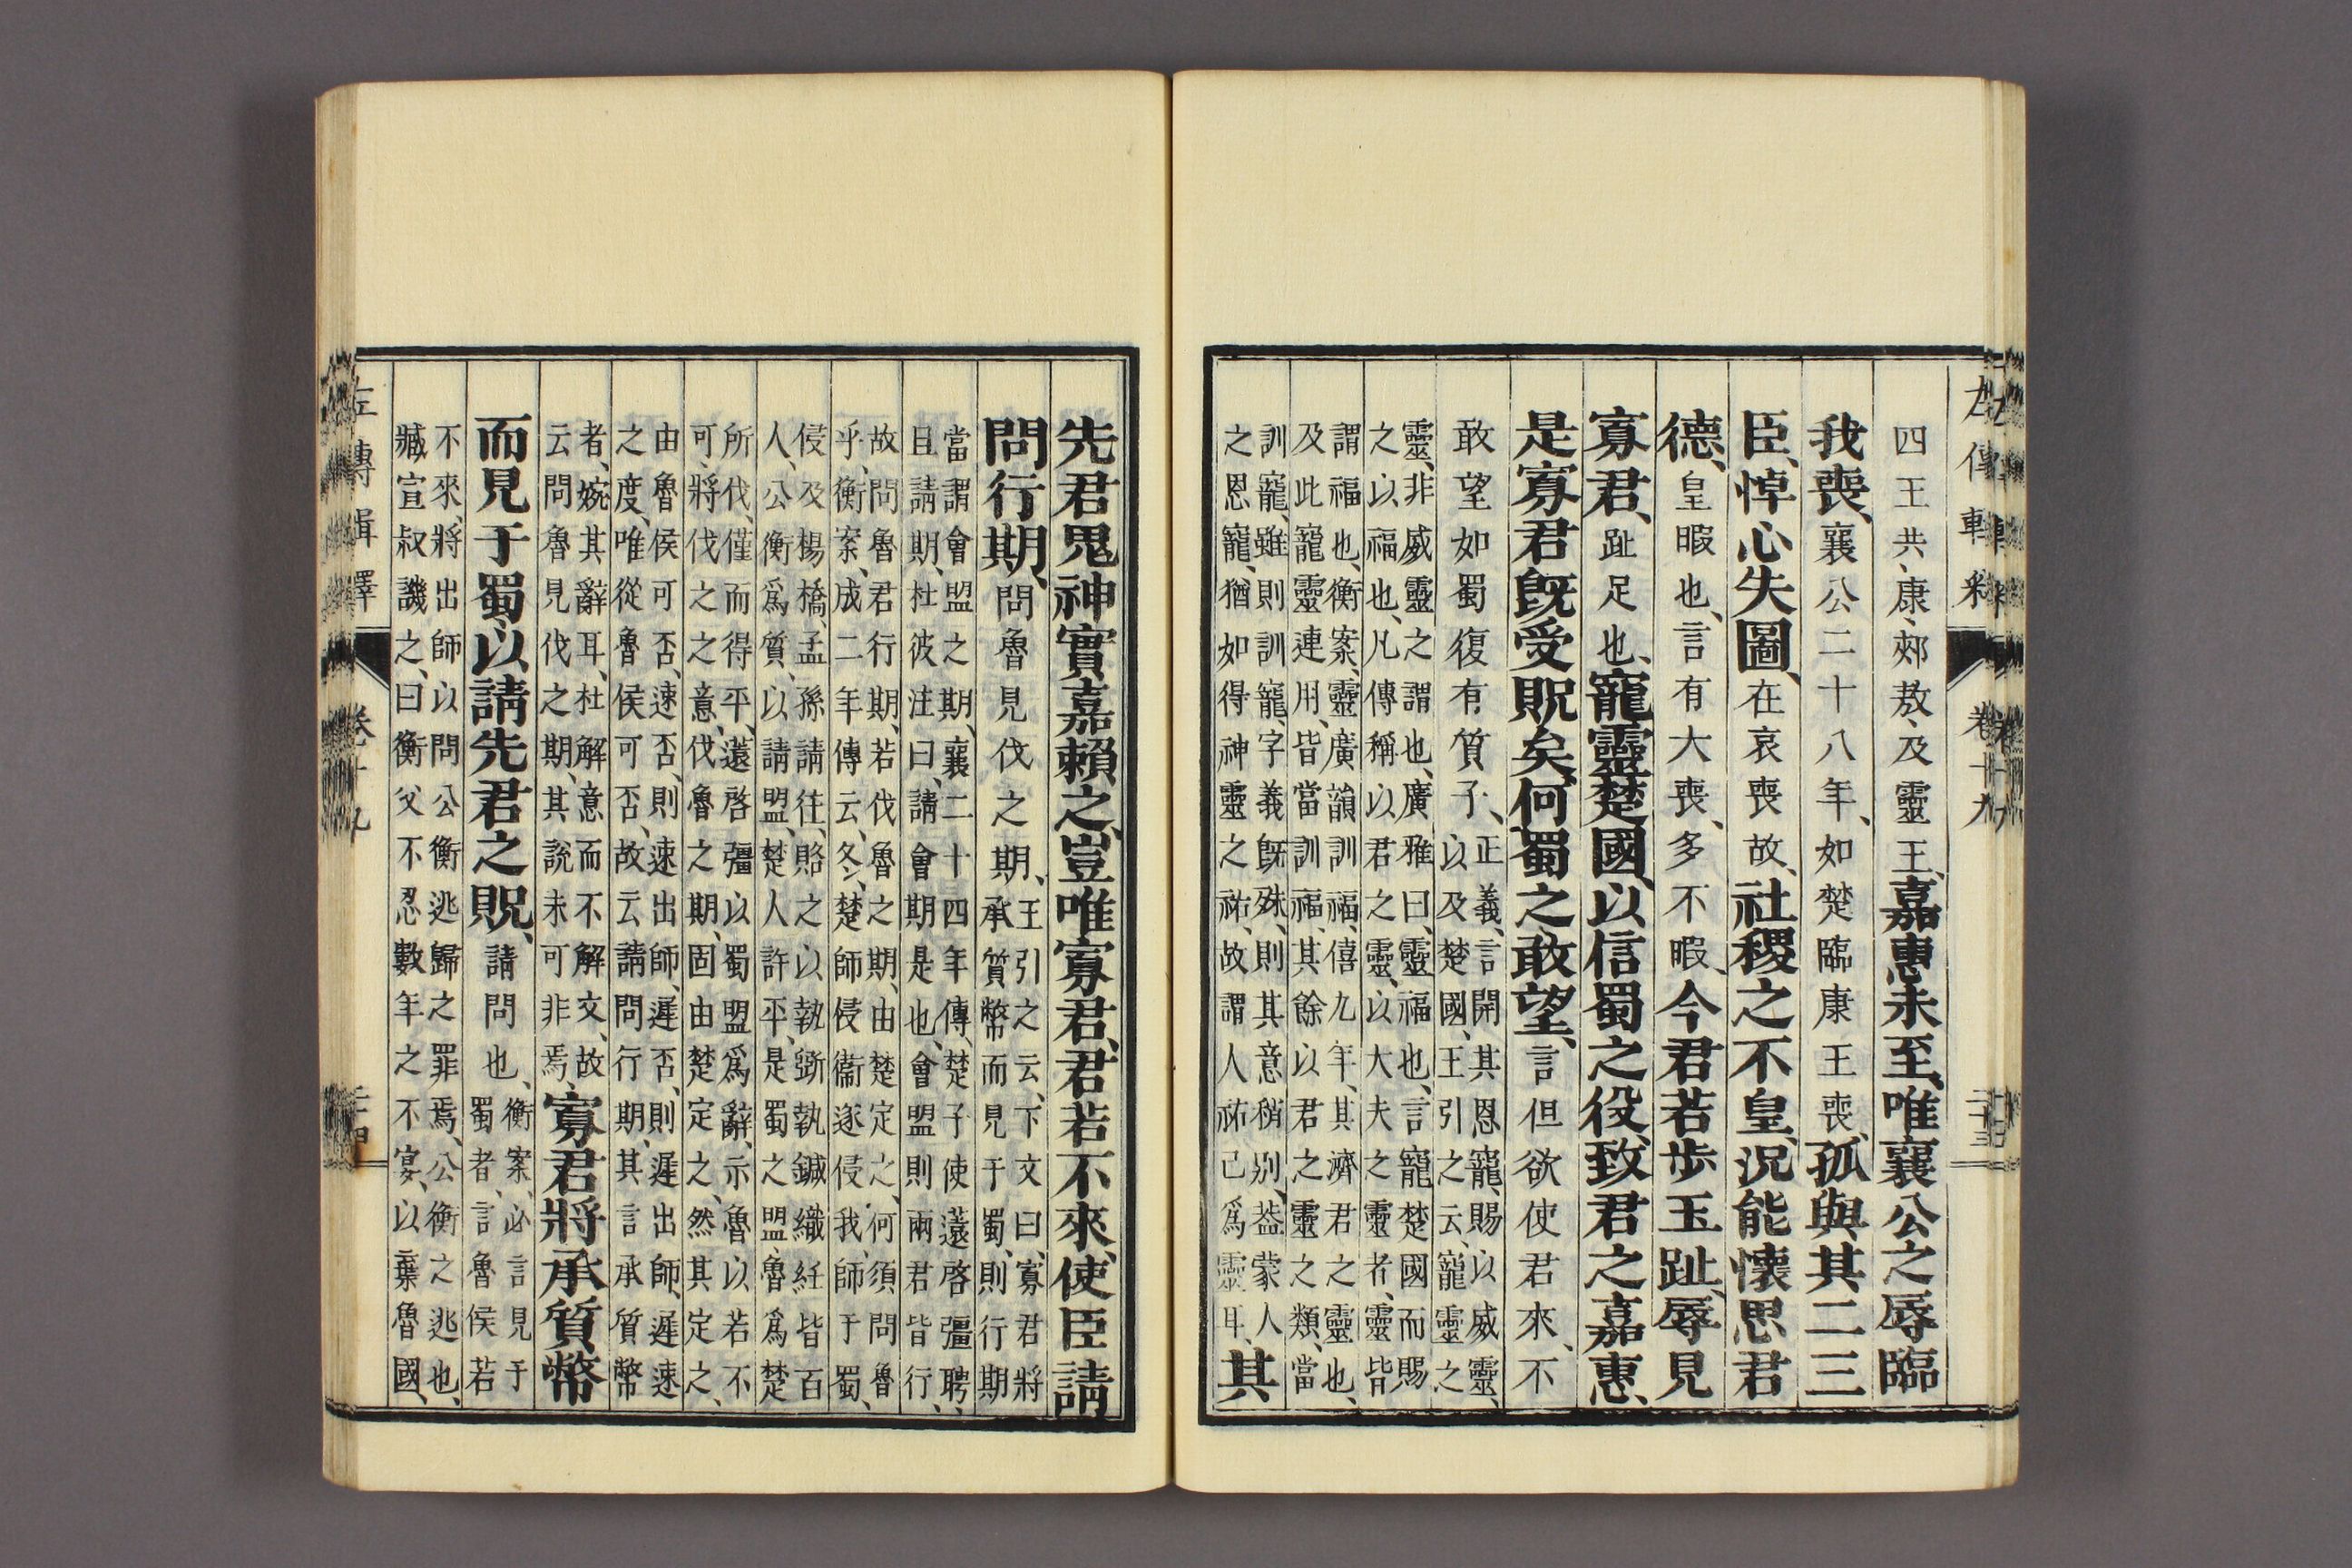 四王共、康、郟敖、及靈王、嘉惠未至、唯襄公之辱臨
我喪、襄公二十八年、如楚臨康王喪、孤與其二三
臣、悼心失圖、在哀喪故、社稷之不皇、況能懷思君
德、皇暇也、言有大喪、多不暇、今君若步玉趾、辱見
寡君、趾足也、寵靈楚國、以信蜀之役、致君之嘉惠、
是寡君既受貺矣、何蜀之敢望、言但欲使君來、不
敢望如蜀復有質子、正義、言開其恩寵、賜以威靈、
以及楚國、王引之云、寵靈之
靈、非威靈之謂也、廣雅曰、靈福也、言寵楚國而賜
之以福也、凡傳稱以君之靈、以大夫之靈者、靈皆
謂福也、衡案、靈、廣韻訓福、僖九年、其濟君之靈也、
及此寵靈連用、皆當訓福、其餘以君之靈之類、當
訓寵、雖則訓寵、字義既殊、則其意稍別、葢蒙人
之恩寵、猶如得神靈之祐、故謂人祐己爲靈耳、其
左傳輯釋 卷十九 二十三
先君鬼神實嘉賴之、豈唯寡君、君若不來、使臣請
問行期、問魯見伐之期、王引之云、下文曰、寡君將
承質幣而見于蜀、則行期
當謂會盟之期、襄二十四年傳、楚子使薳啓彊聘、
且請期、杜彼注曰、請會期是也、會盟則兩君皆行、
故問魯君行期、若伐魯之期、由楚定之、何須問魯
乎、衡案、成二年傳云、冬、楚師侵衞、遂侵我、師于蜀、
侵及楊橋、孟孫請往、賂之以執斲執鍼織紝皆百
人、公衡爲質、以請盟、楚人許平、是蜀之盟、魯爲楚
所伐、僅而得平、薳啓彊以蜀盟爲辭、示魯以若不
可、將伐之之意、伐魯之期、固由楚定之、然其定之、
由魯侯可否、速否、則速出師、遲否、則遲出師、遲速
之度、唯從魯侯可否、故云請問行期、其言承質幣
者、婉其辭耳、杜解意而不解文、故
云問魯見伐之期、其說未可非焉、寡君將承質幣
而見于蜀、以請先君之貺、請問也、衡案、必言見于
蜀者、言魯侯若
不來、將出師以問公衡逃歸之罪焉、公衡之逃也、
臧宣叔譏之、曰衡父不忍數年之不宴、以棄魯國、
左傳輯釋 卷十九 二十四